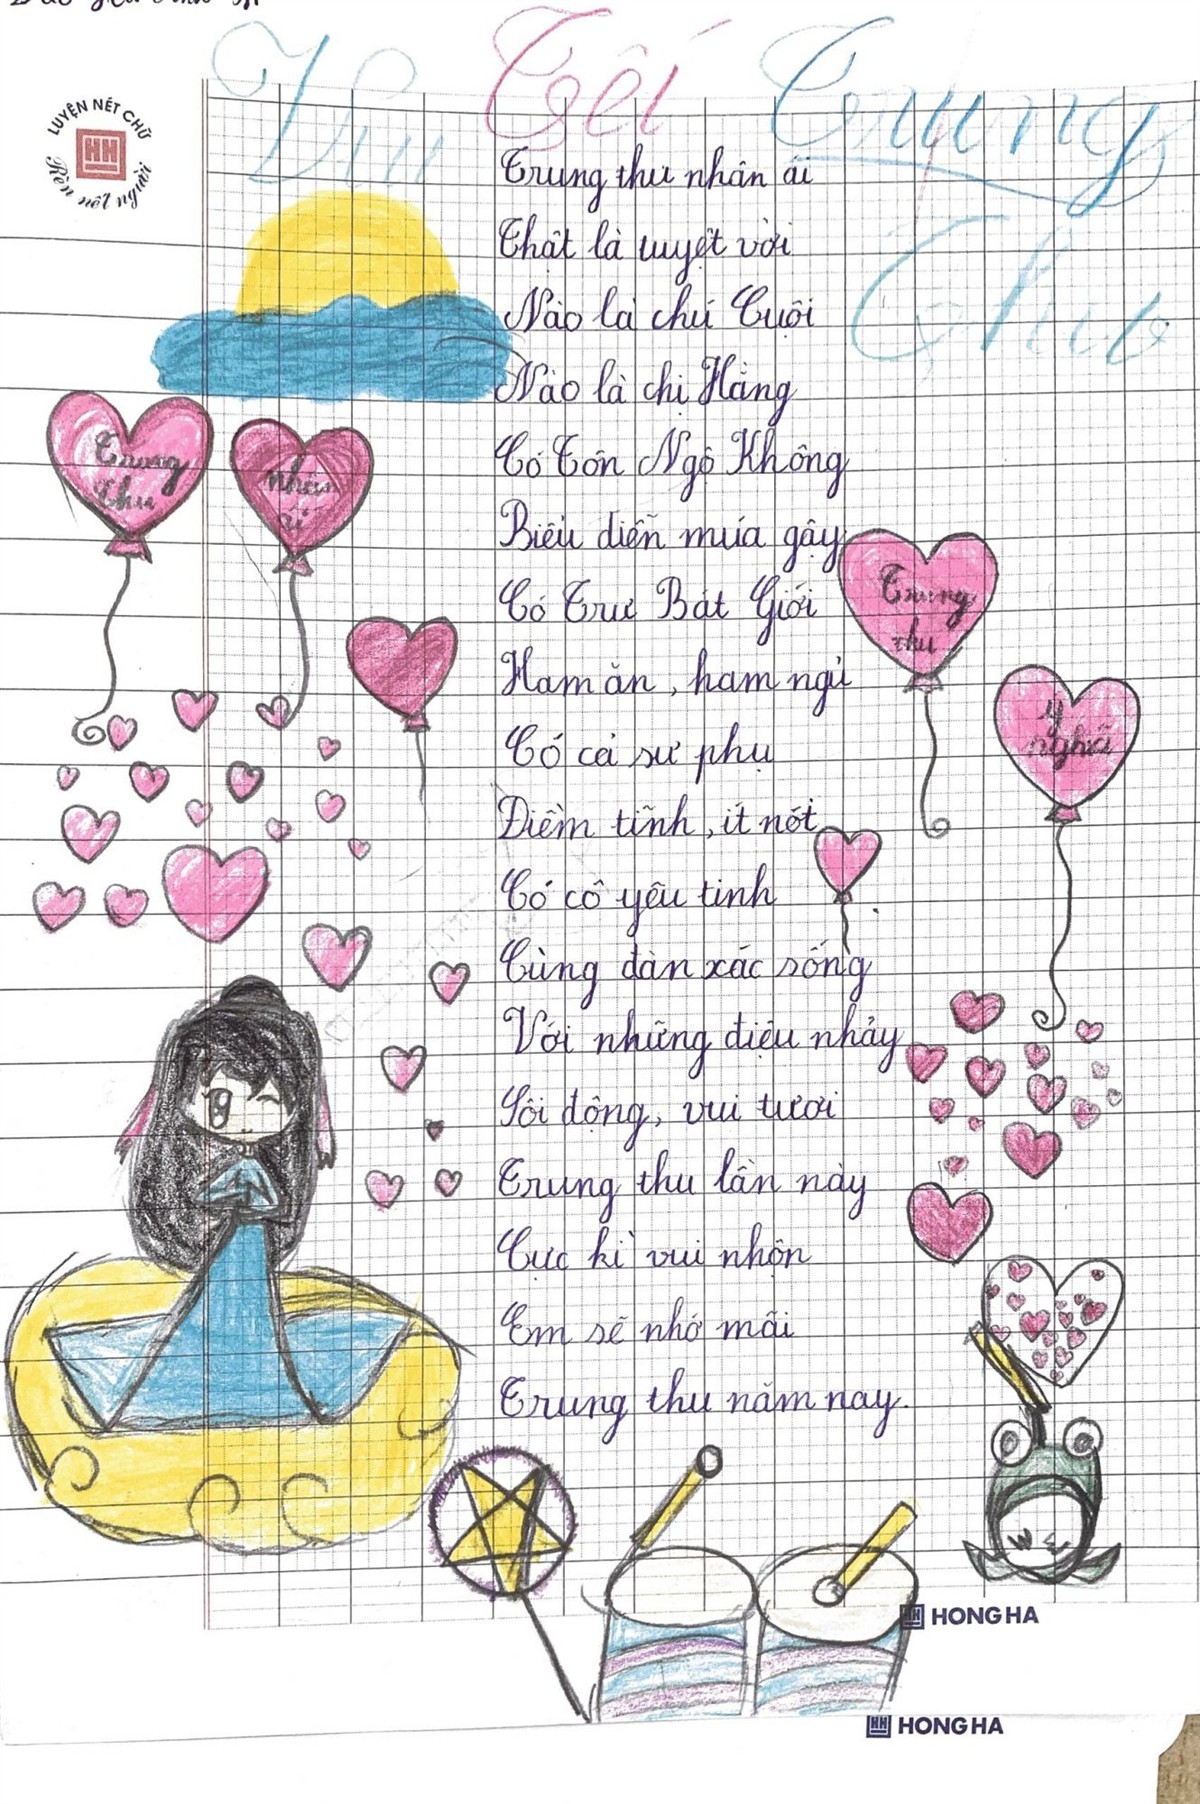 LUYỆN NÉT CHỮ
Rèn nét người
Vui Tết Trung
Thu
Trung thu nhân ái
Thật là tuyệt vời
Nào là chú Cuội
Nào là chị Hằng
Có Tôn Ngộ Không
Biểu diễn múa gậy
Có Trư Bát Giới
Ham ăn, ham ngủ
Có cả sư phụ
Điềm tĩnh, ít nói
Có cô yêu tinh
Cùng đàn xác sống
Với những điệu nhảy
Sôi động, vui tươi
Trung thu lần này
Cực kì vui nhộn
Em sẽ nhớ mãi
Trung thu năm nay.
Trung
thu
nhân
ái
Trung
thu
ý
nghĩa
HONG HA
HONG HA